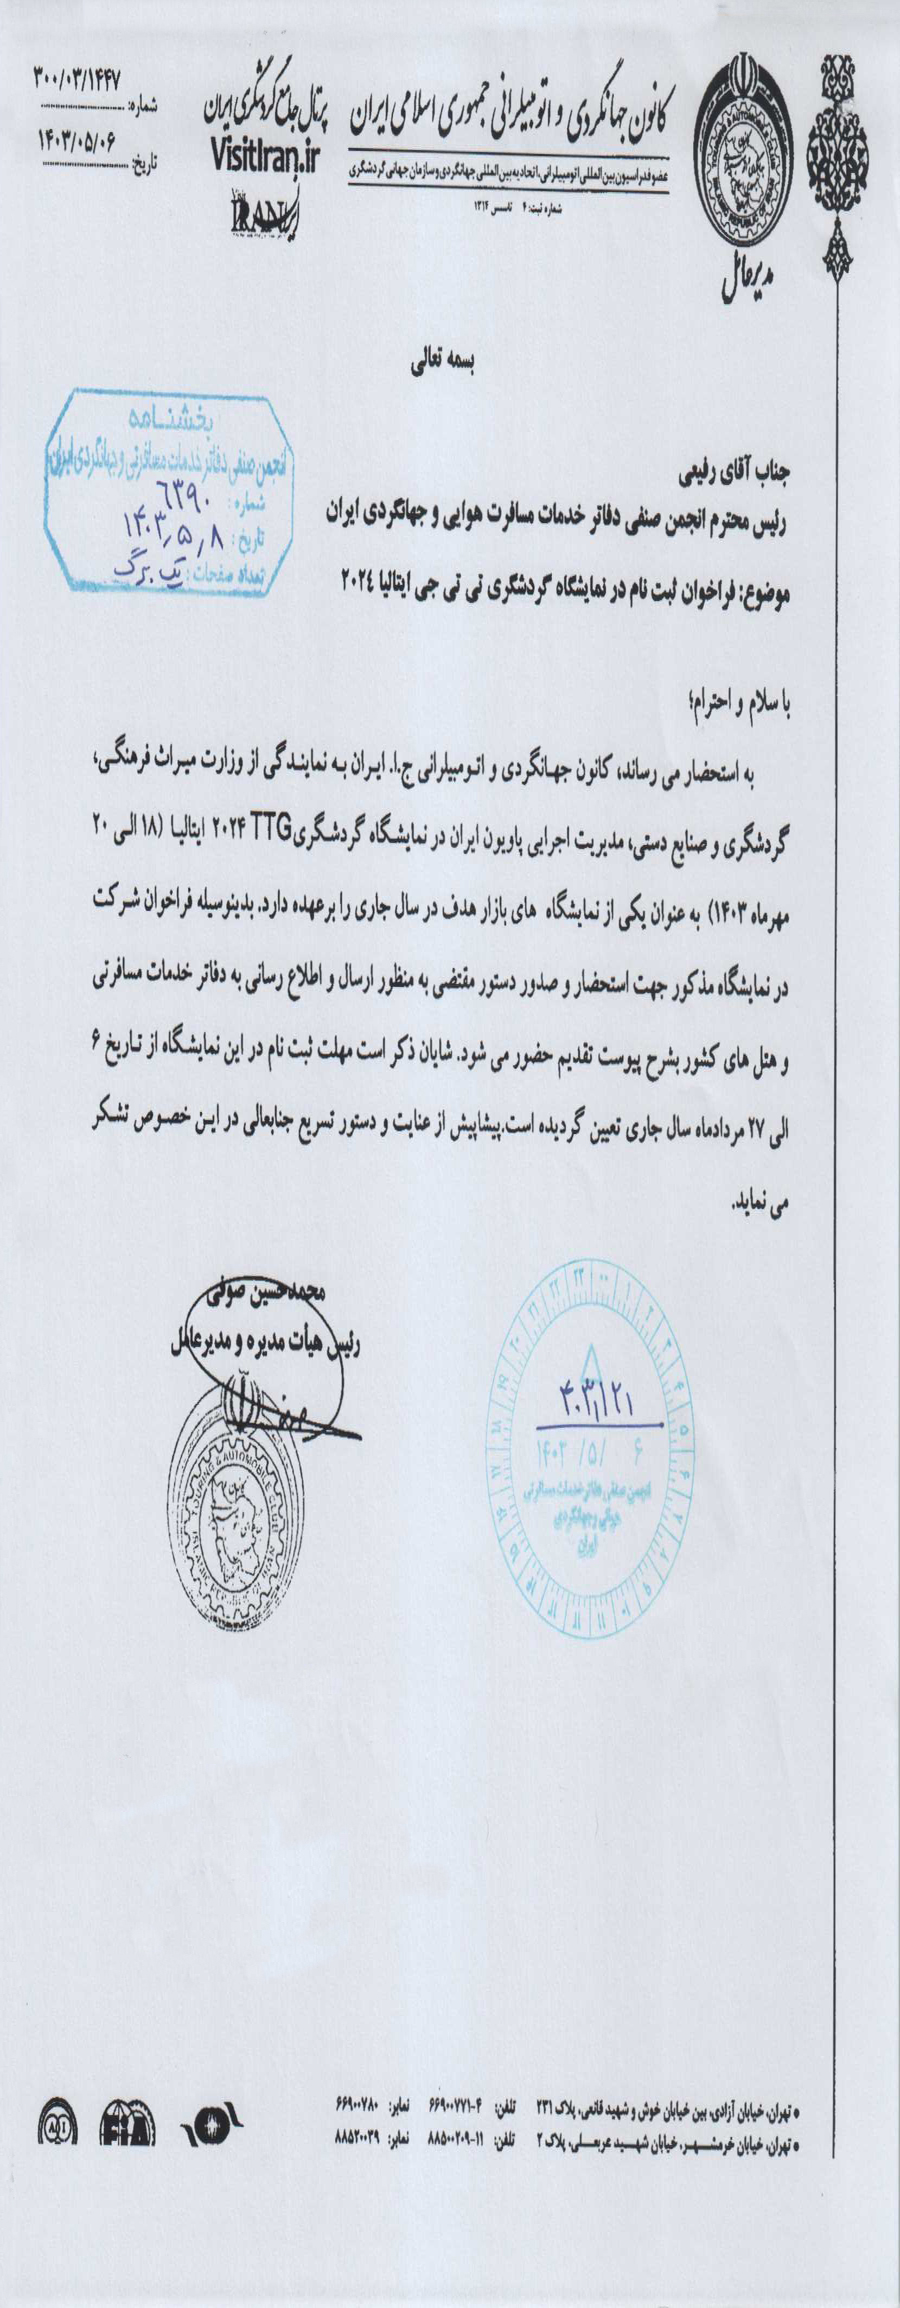 کانون جهانگردی و اتومبیلرانی جمهوری اسلامی ایران
عضو فدراسیون بین المللی اتومبیلرانی، اتحادیه بین المللی جهانگردی و سازمان جهانی گردشگری
شماره ثبت: ۴ تاسیس ۱۳۱۴
مدیرعامل
پرتال جامع گردشگری ایران
VisitIran.ir
Visit IRAN ایران
شماره: ۳۰۰/۰۳/۱۴۴۷
تاریخ: ۱۴۰۳/۰۵/۰۶
بسمه تعالی
بخشنامه
انجمن صنفی دفاتر خدمات مسافرتی و جهانگردی ایران
شماره: ۶۳۹۰
تاریخ: ۱۴۰۳٫۵٫۸
تعداد صفحات: یک برگ
جناب آقای رفیعی
رئیس محترم انجمن صنفی دفاتر خدمات مسافرت هوایی و جهانگردی ایران
موضوع: فراخوان ثبت نام در نمایشگاه گردشگری تی تی جی ایتالیا ۲۰۲٤
با سلام و احترام؛
به استحضار می رساند، کانون جهانگردی و اتومبیلرانی ج.ا. ایران به نمایندگی از وزارت میراث فرهنگی،
گردشگری و صنایع دستی، مدیریت اجرایی پاویون ایران در نمایشگاه گردشگری TTG ۲۰۲۴ ایتالیا (۱۸ الی ۲۰
مهرماه ۱۴۰۳) به عنوان یکی از نمایشگاه های بازار هدف در سال جاری را برعهده دارد. بدینوسیله فراخوان شرکت
در نمایشگاه مذکور جهت استحضار و صدور دستور مقتضی به منظور ارسال و اطلاع رسانی به دفاتر خدمات مسافرتی
و هتل های کشور بشرح پیوست تقدیم حضور می شود. شایان ذکر است مهلت ثبت نام در این نمایشگاه از تاریخ ۶
الی ۲۷ مردادماه سال جاری تعیین گردیده است.پیشاپیش از عنایت و دستور تسریع جنابعالی در این خصوص تشکر
می نماید.
محمدحسین صوفی
رئیس هیأت مدیره و مدیرعامل
TOURING & AUTOMOBILE CLUB
۱۴۰۳ /۵/ ۶
انجمن صنفی دفاتر خدمات مسافرتی
هوائی و جهانگردی
ایران
* تهران، خیابان آزادی، بین خیابان خوش و شهید قانعی، پلاک ۲۳۱ تلفن: ۴-۶۶۹۰۰۷۷۱ نمابر: ۶۶۹۰۰۷۸۰
* تهران، خیابان خرمشهر، خیابان شهید عربعلی، پلاک ۲ تلفن: ۱۱-۸۸۵۰۰۲۰۹ نمابر: ۸۸۵۲۰۰۲۹
FiA